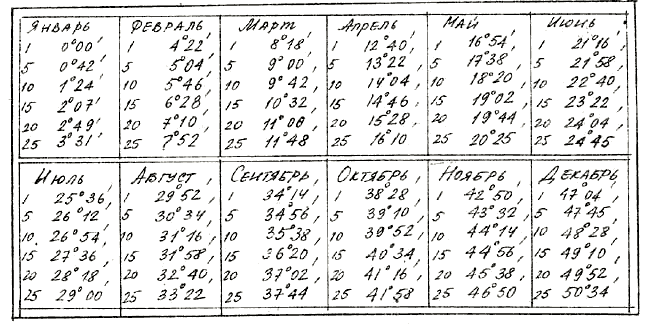 Январь Февраль Март Апрель Май Июнь
1 0°00' 1 4°22' 1 8°18' 1 12°40' 1 16°54' 1 21°16'
5 0°42' 5 5°04' 5 9°00' 5 13°22' 5 17°38' 5 21°58'
10 1°24' 10 5°46' 10 9°42' 10 14°04' 10 18°20' 10 22°40'
15 2°07' 15 6°28' 15 10°32' 15 14°46' 15 19°02' 15 23°22'
20 2°49' 20 7°10' 20 11°06' 20 15°28' 20 19°44' 20 24°04'
25 3°31' 25 7°52' 25 11°48' 25 16°10' 25 20°25' 25 24°45'
Июль Август Сентябрь Октябрь Ноябрь Декабрь
1 25°36' 1 29°52' 1 34°14' 1 38°28' 1 42°50' 1 47°04'
5 26°12' 5 30°34' 5 34°56' 5 39°10' 5 43°32' 5 47°45'
10 26°54' 10 31°16' 10 35°38' 10 39°52' 10 44°14' 10 48°28'
15 27°36' 15 31°58' 15 36°20' 15 40°34' 15 44°56' 15 49°10'
20 28°18' 20 32°40' 20 37°02' 20 41°16' 20 45°38' 20 49°52'
25 29°00' 25 33°22' 25 37°44' 25 41°58' 25 46°50' 25 50°34'